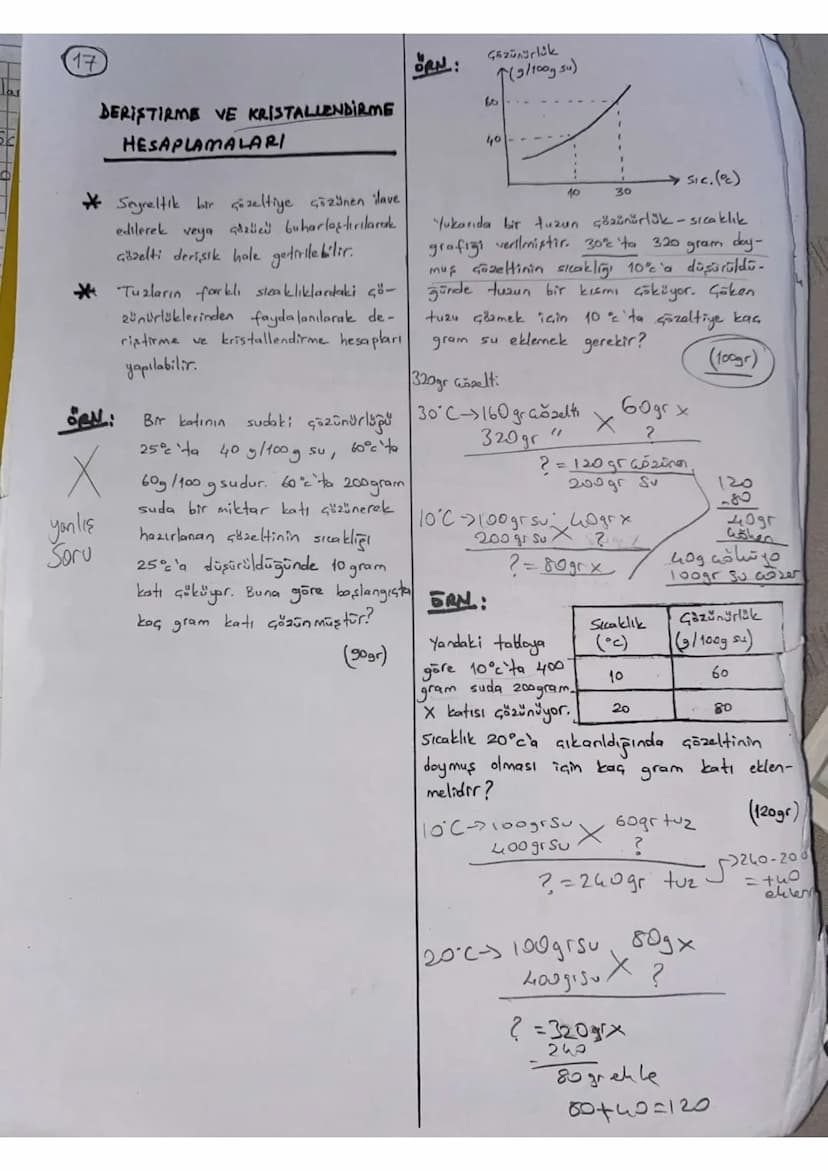 17
DERİŞTİRME VE KRİSTALLENDİRME
HESAPLAMALARI
* Seyreltik bir çözeltiye çözünen ilave
edilerek veya çözücü buharlaştırılarak
çözelti derişik hale getirilebilir.
* Tuzların farklı sıcaklıklardaki çö-
zünürlüklerinden faydalanılarak de-
riştirme ve kristallendirme hesapları
yapılabilir.
ÖRN: Bir katının sudaki çözünürlüğü
25°c'ta 40 g/100 g su, 60°c'ta
60g/100 g sudur. 60°c'ta 200gram
suda bir miktar katı çözünerek
hazırlanan çözeltinin sıcaklığı
25°c'a düşürüldüğünde 10gram
katı çöküyor. Buna göre başlangıçta
kaç gram katı çözünmüştür?
(90gr)
X
yanlış
Soru
ÖRN:
Çözünürlük
(g/100g su)
60
40
10 30
sıc.(°c)
Yukarıda bir tuzun çözünürlük-sıcaklık
grafiği verilmiştir. 30°c'ta 320 gram doy-
muş çözeltinin sıcaklığı 10°c'a düşürüldü-
ğünde tuzun bir kısmı çöküyor. Çöken
tuzu çözmek için 10°c'ta çözeltiye kaç
gram su eklemek gerekir?
(100gr)
320gr çözelti
30°C→160gr çözelti 60gr x
320gr " ?
? = 120gr çözünen
200gr su
10°C→100gr su 40gr x
200gr su ?
? = 80gr x
120
-80
40gr
çöken
100gr su çözer
ÖRN:
Sıcaklık (°c) Çözünürlük (g/100g su)
10 60
20 80
Yandaki tabloya
göre 10°c'ta 400
gram suda 200gram
X katısı çözünüyor.
Sıcaklık 20°c'a çıkarıldığında çözeltinin
doymuş olması için kaç gram katı eklen-
melidir?
(120gr)
10°C→100gr su 60gr tuz
400gr su ?
? = 240gr tuz
→240-200
= +40
20°C→100gr su 80g x
400gr su ?
? = 320gr x
- 240
80gr ekle
80+40=120